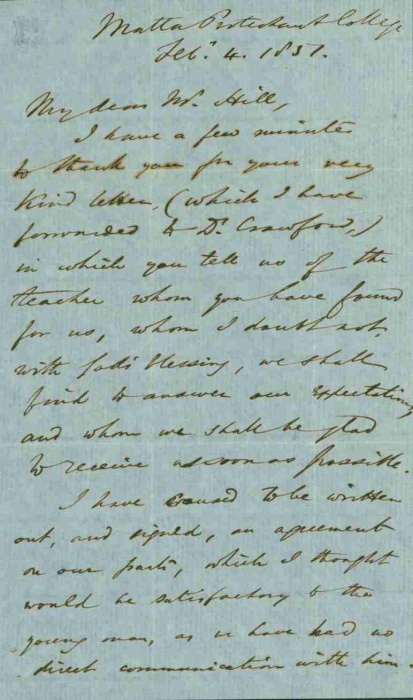 Malta Protestant College
Feb. 4. 1851.
My dear Mr. Hill,
I have a few minutes
to thank you for your very
kind letter, (which I have
forwarded to Dr. Crawford,)
in which you tell us of the
teacher whom you have found
for us, whom I doubt not,
with God's blessing, we shall
find to answer our expectations
and whom we shall be glad
to receive as soon as possible.
I have caused to be written
out, and signed, an agreement
on our parts, which I thought
would be satisfactory to the
young man, as we have had no
direct communication with him.